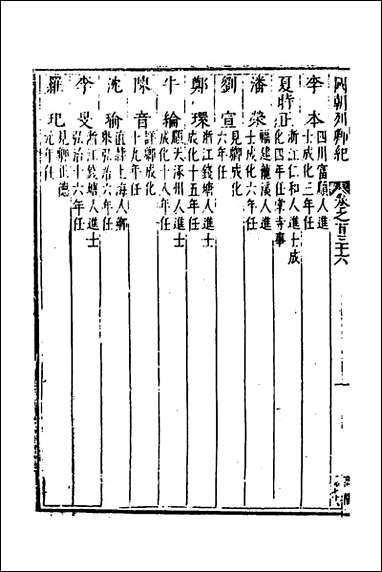 國朝列卿紀 卷之一百三十六
李本 四川富順人進士成化三年任
夏時正 浙江仁和人進士成化四年任掌寺事
潘榮 福建龍溪人進士成化六年任
劉宣 見卿成化六年任
鄭環 浙江錢塘人進士成化十五年任
牛綸 順天涿州人進士成化十八年任
陳音 詳卿成化十九年任
沈瑜 直隸上海人鄉舉弘治六年任
李旻 浙江錢塘人進士弘治十六年任
羅玘 見卿正德元年任